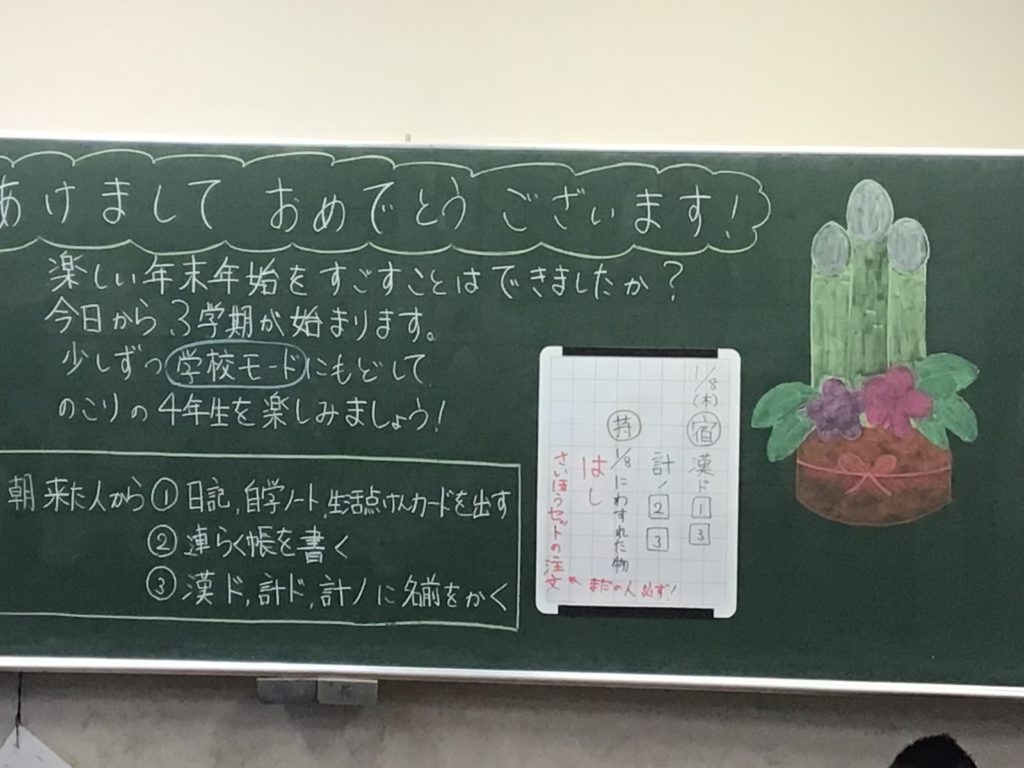 あけまして おめでとう ございます!
楽しい年末年始をすごすことはできましたか?
今日から3学期が始まります。
少しずつ学校モードにもどして
のこりの4年生を楽しみましょう!
朝 来た人から ①日記,自学ノート,生活点けんカードを出す
②連らく帳を書く
③漢ド,計ド,計ノに名前をかく
1/8(木)
宿 漢ド 1 3
計ノ 2 3
持 1/8にわすれた物
はし
さいほうセットの注文 まだの人 必ず!